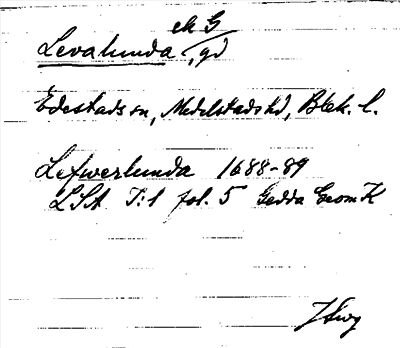 Levalunda ek G, gd
Edestads sn, Medelstads hd, Blek. l.
Lefwerlunda 1688-89
LSA T:1 fol. 5 Gedda Geom K